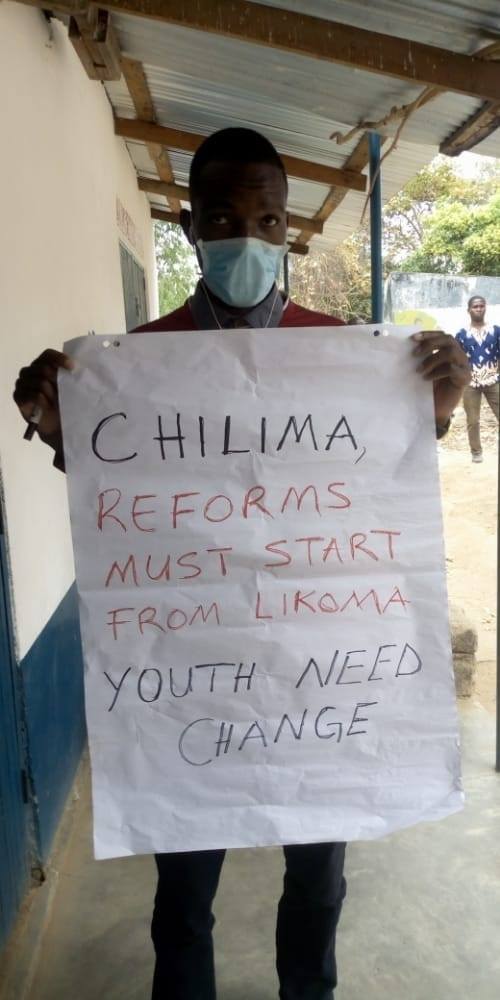 CHILIMA,
REFORMS
MUST START
FROM LIKOMA
YOUTH NEED
CHANGE